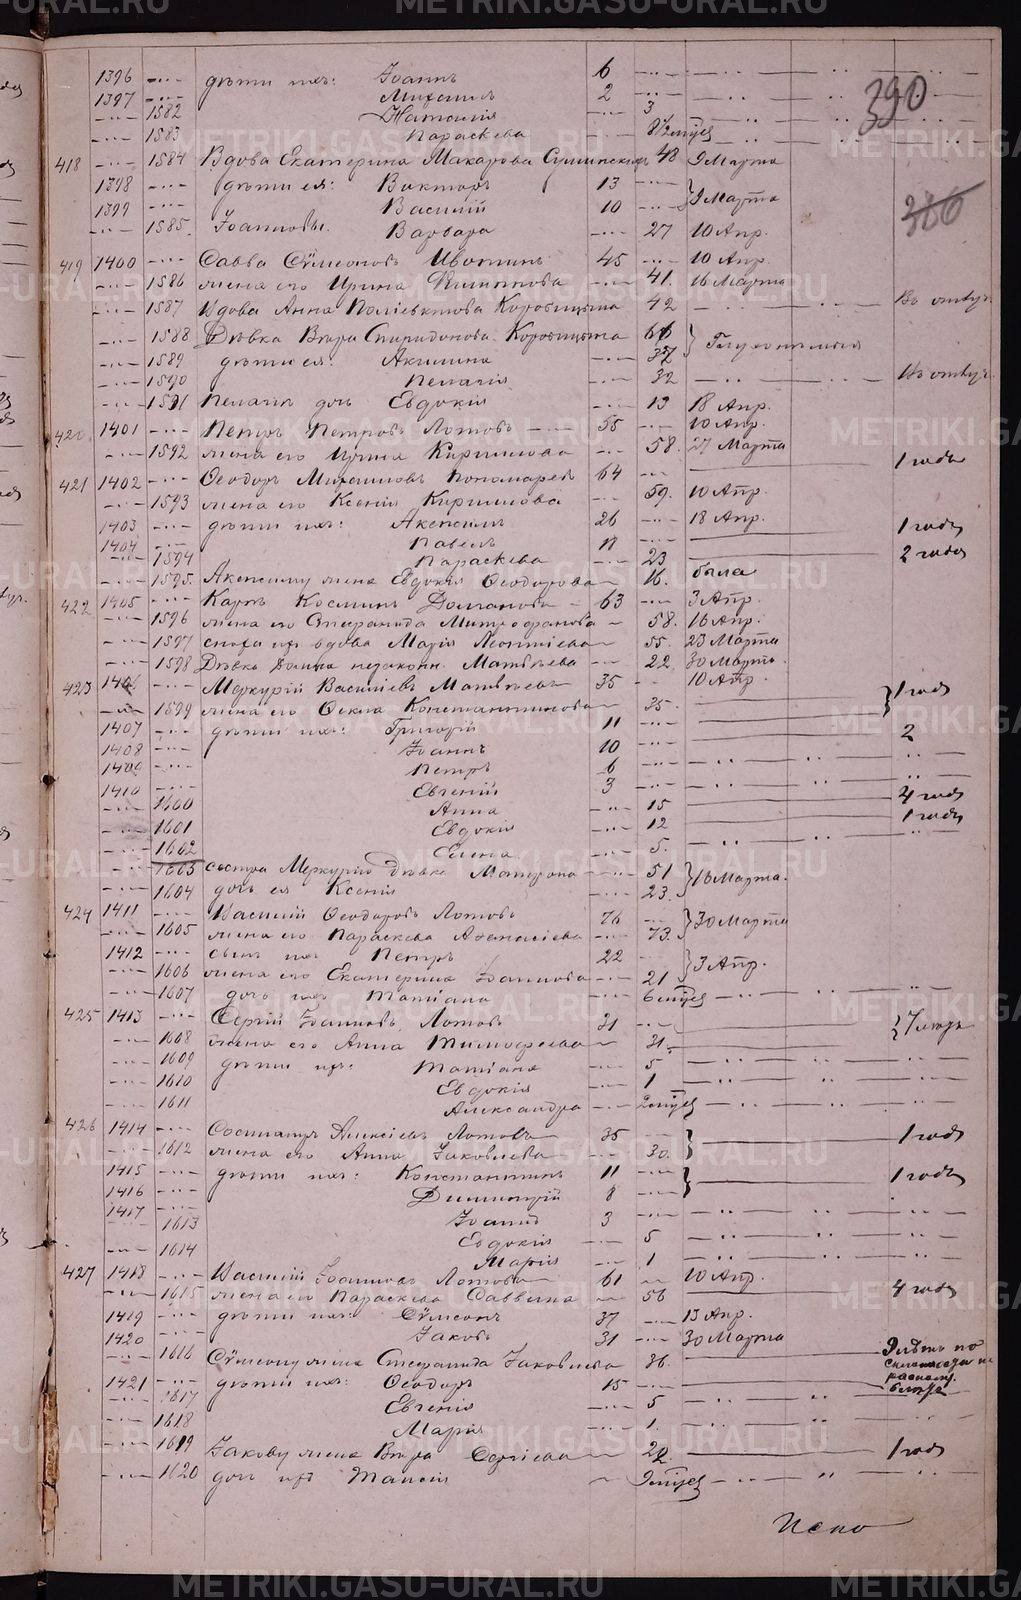 METRIKI.GASO-URAL.RU
390
1396 -··- дѣти ихъ: Іоаннъ 6 -··-
1397 -··- Михаилъ 2 -··-
-··- 1582 Наталія -··- 3
-··- 1583 Параскева -··- 8½ мцев
418 -··- 1584 Вдова Екатерина Макарова 48 9 Марта
1398 -··- дѣти ея: Викторъ 13 -··-
1399 -··- Василій 10 -··- } 9 Марта
386
-··- 1585 Іоаннова Варвара -··- 27 10 Апр.
419 1400 -··- Савва Сѵмеоновъ 45 -··- 10 Апр.
-··- 1586 жена его Ирина Филиппова -··- 41. 16 Марта
-··- 1587 Вдова Анна 42 Въ отлуч.
-··- 1588 Дѣвка Вѣра Спиридонова 66
-··- 1589 дѣти ея: Акилина -··- 37
-··- 1590 Пелагія 32 Въ отлуч.
-··- 1591 Пелагіи дочь Евдокія -··- 13 18 Апр.
420. 1401 -··- Петръ Петровъ Лотовъ 55 -··- 10 Апр.
-··- 1592 жена его Ирина Кириллова -··- 58. 27 Марта
421 1402 -··- Ѳеодоръ Михаиловъ Пономаревъ 64 -··- 1 годъ
-··- 1593 жена его Ксенія Кириллова 59. 10 Апр.
1403 -··- дѣти ихъ: 26 -··- 18 Апр.
1404 -··- Павелъ 1 годъ
-··- 1594 Параскева -··- 23 2 года
-··- 1595. жена Евдокія Ѳеодорова 16. была
422 1405 -··- Карпъ Косминъ 63 -··- 3 Апр.
-··- 1596 жена его Стефанида Митрофанова 58. 16 Апр.
-··- 1597 сноха ихъ вдова Марія Леонтіева 55. 23 Марта
-··- 1598 Дѣвка незаконн. Матвѣева -··- 22. 30 Марта.
423 1406 -··- Меркурій Васильевъ Матвѣевъ 35 -··- 10 Апр.
-··- 1599 жена его Ѳекла Константинова 35. } 1 годъ
1407 -··- дѣти ихъ: Григорій 11 -··-
1408 -··- Іоаннъ 10 -··- 2
1409 -··- Петръ 6 -··-
1410 -··- Евгеній 3 -··-
-··- 1600 Анна -··- 15 4 года
-··- 1601 Евдокія -··- 12 1 годъ
-··- 1602 Елена -··- 5.
-··- 1603 сестра Меркурія дѣвка Матрона -··- 51
-··- 1604 дочь ея Ксенія -··- 23. } 16 Марта.
424 1411 -··- Василій Ѳеодоровъ Лотовъ 76 -··-
-··- 1605 жена его Параскева Аѳанасіева -··- 73. } 30 Марта
1412 -··- сынъ ихъ Петръ 22 -··-
-··- 1606 жена его Екатерина Іоаннова -··- 21 } 3 Апр.
-··- 1607 дочь ихъ Татіана -··- 6 мцев
425 1413 -··- Сергій Іоанновъ Лотовъ 31 -··-
-··- 1608 жена его Анна Тимоѳеева 31. { 7 лѣтъ
-··- 1609 дѣти ихъ: Татіана -··- 5
-··- 1610 Евдокія -··- 1
-··- 1611 Александра -··- 2 мцев
426 1414 -··- Алексіевъ Лотовъ 35 -··-
-··- 1612 жена его Анна Іаковлева -··- 30. } 1 годъ
1415 -··- дѣти ихъ: Константинъ 11 -··-
1416 -··- Димитрій 8 -··- } 1 годъ
1417 -··- Іоаннъ 3 -··-
-··- 1613 Евдокія -··- 5
-··- 1614 Марія -··- 1
427 1418 -··- Василій Іоанновъ Лотовъ 61 -··- 10 Апр.
-··- 1615 жена его Параскева Саввина 56 4 года
1419 -··- дѣти ихъ: Сѵмеонъ 37 -··- 13 Апр.
1420 -··- Іаковъ 31 -··- 30 Марта
-··- 1616 Сѵмеону жена Стефанида Іаковлева 36.
1421 -··- дѣти ихъ: Ѳеодоръ 15 -··-
-··- 1617 Евгенія -··- 5
-··- 1618 Марія -··- 1.
-··- 1619 Іакову жена Вѣра Сергіева 22. 1 годъ
-··- 1620 дочь ихъ 9 мцев